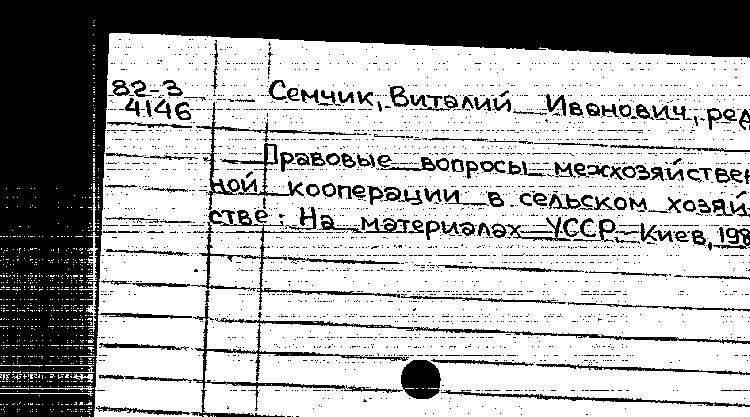 82-3
4146
Семчик, Виталий Иванович, ред
Правовые вопросы межхозяйствен
ной кооперации в сельском хозяй
стве: На материалах УССР.- Киев, 198